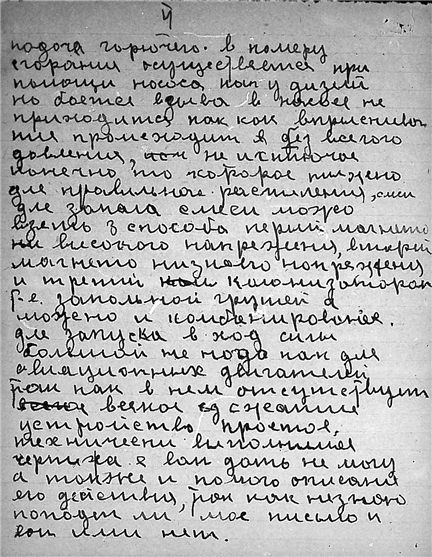 4
подоча горючего. в комеру
сгорания осуществляется при
помощи нососа как у дизий
но боятся взрыва в насосе не
приходится как как впрыскива
ния происходит в без всегого
довления, не исключое
конечно то которое нужено
для провильное распиления, смеси
для запала смеси можо
взять 3 способа первий магнето
высокого напряжения, второй
могнето низкого нопряжения
и третий колонизаторон
т.е. запольной грушей а
можно и комбенировоное.
для запуска в ход силы
большой не нодо как для
авиационных двигателей
так как в нем отсутствуит
всякое сжатие
устройство простое,
технически виполнимое
чертижа я вам дать не могу
а также и полого описания
его действия, так как незноюю
поподет ли мое письмо к
вам или нет.